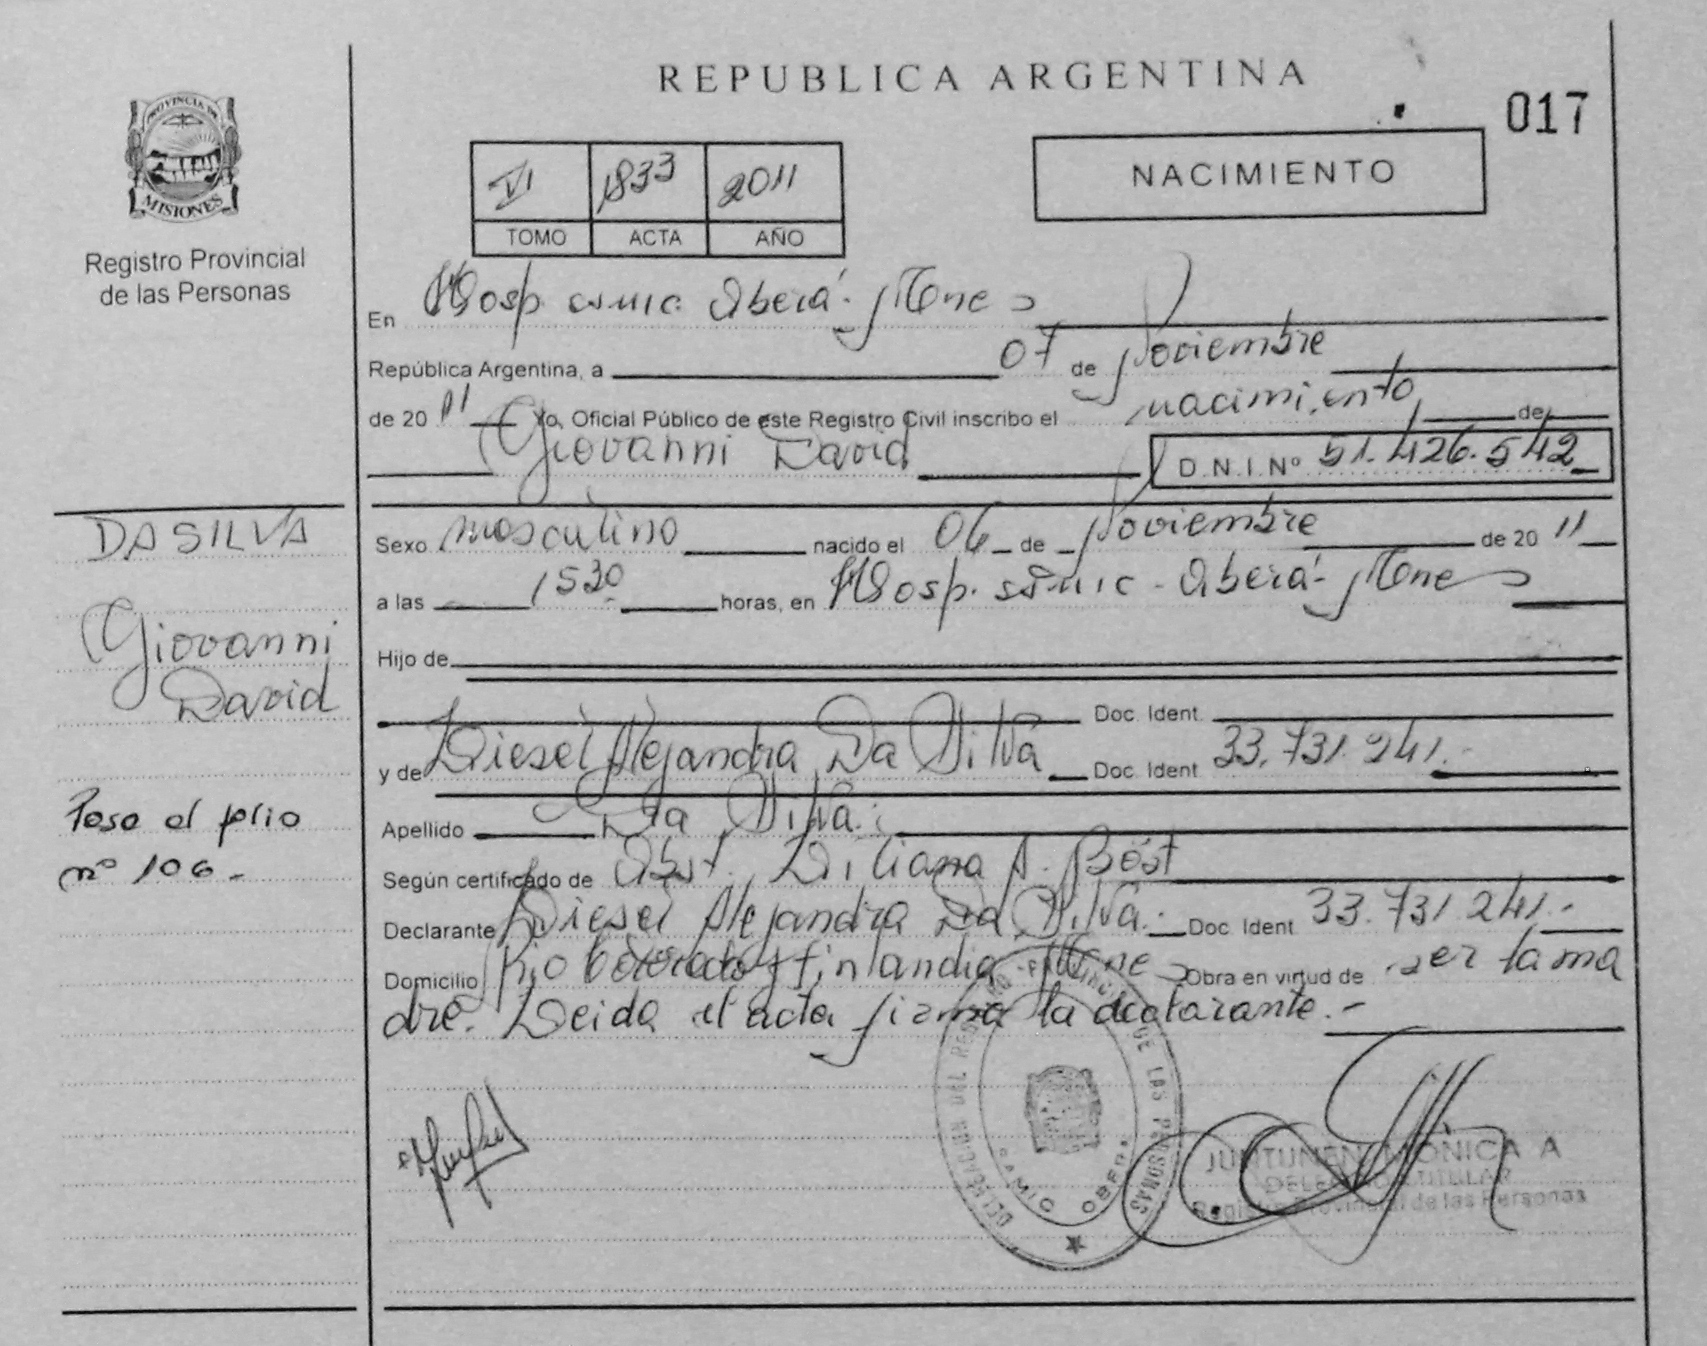 REPUBLICA ARGENTINA
017
PROVINCIA DE
MISIONES
Registro Provincial
de las Personas
VI 1833 2011
TOMO ACTA AÑO
NACIMIENTO
En Hosp. Samic Oberá - Mnes
República Argentina, a 07 de Noviembre
de 2011 Yo, Oficial Público de este Registro Civil inscribo el nacimiento de
Giovanni David D.N.I. Nº 51.426.542
DA SILVA
Giovanni
David
Paso al folio
nº 106.-
Sexo masculino nacido el 06 de Noviembre de 2011
a las 1530 horas, en Hosp. Samic - Oberá - Mnes
Hijo de
Doc. Ident.
y de Liesel Alejandra Da Silva Doc. Ident. 33.731.241.-
Apellido Da Silva.
Según certificado de Obst. Liliana A. Böst
Declarante Liesel Alejandra Da Silva.- Doc. Ident. 33.731.241.-
Domicilio Rio y Finlandia Mnes Obra en virtud de ser la ma
dre. Leida el acta firma la declarante.-
DELEGACION DEL REGISTRO PROVINCIAL DE LAS PERSONAS
OBERA
JUNTUNEN MÓNICA A
DELEGADO TITULAR
Registro Provincial de las Personas